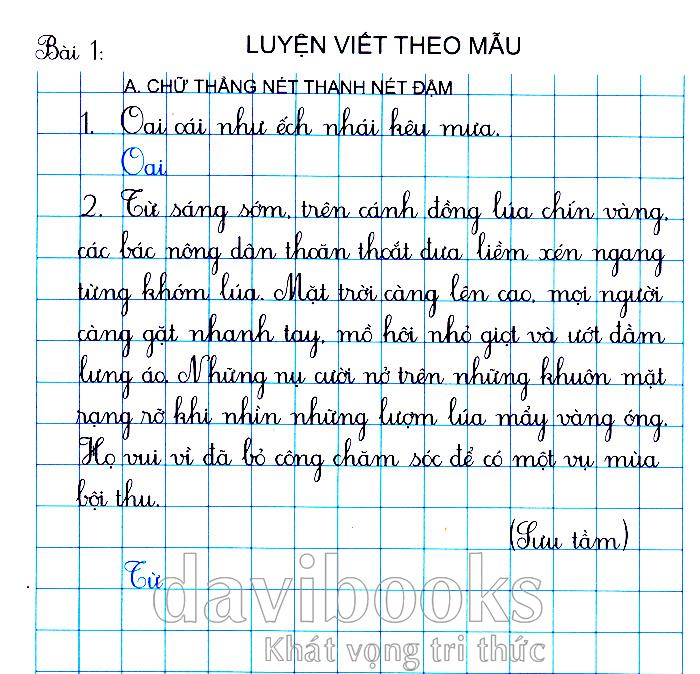 Bài 1: LUYỆN VIẾT THEO MẪU
A. CHỮ THẲNG NÉT THANH NÉT ĐẬM
1. Oai oái như ếch nhái kêu mưa.
Oai
2. Từ sáng sớm, trên cánh đồng lúa chín vàng,
các bác nông dân thoăn thoắt đưa liềm xén ngang
từng khóm lúa. Mặt trời càng lên cao, mọi người
càng gặt nhanh tay, mồ hôi nhỏ giọt và ướt đầm
lưng áo. Những nụ cười nở trên những khuôn mặt
rạng rỡ khi nhìn những lượm lúa mẩy vàng óng.
Họ vui vì đã bỏ công chăm sóc để có một vụ mùa
bội thu.
(Sưu tầm)
Từ
davibooks
Khát vọng tri thức